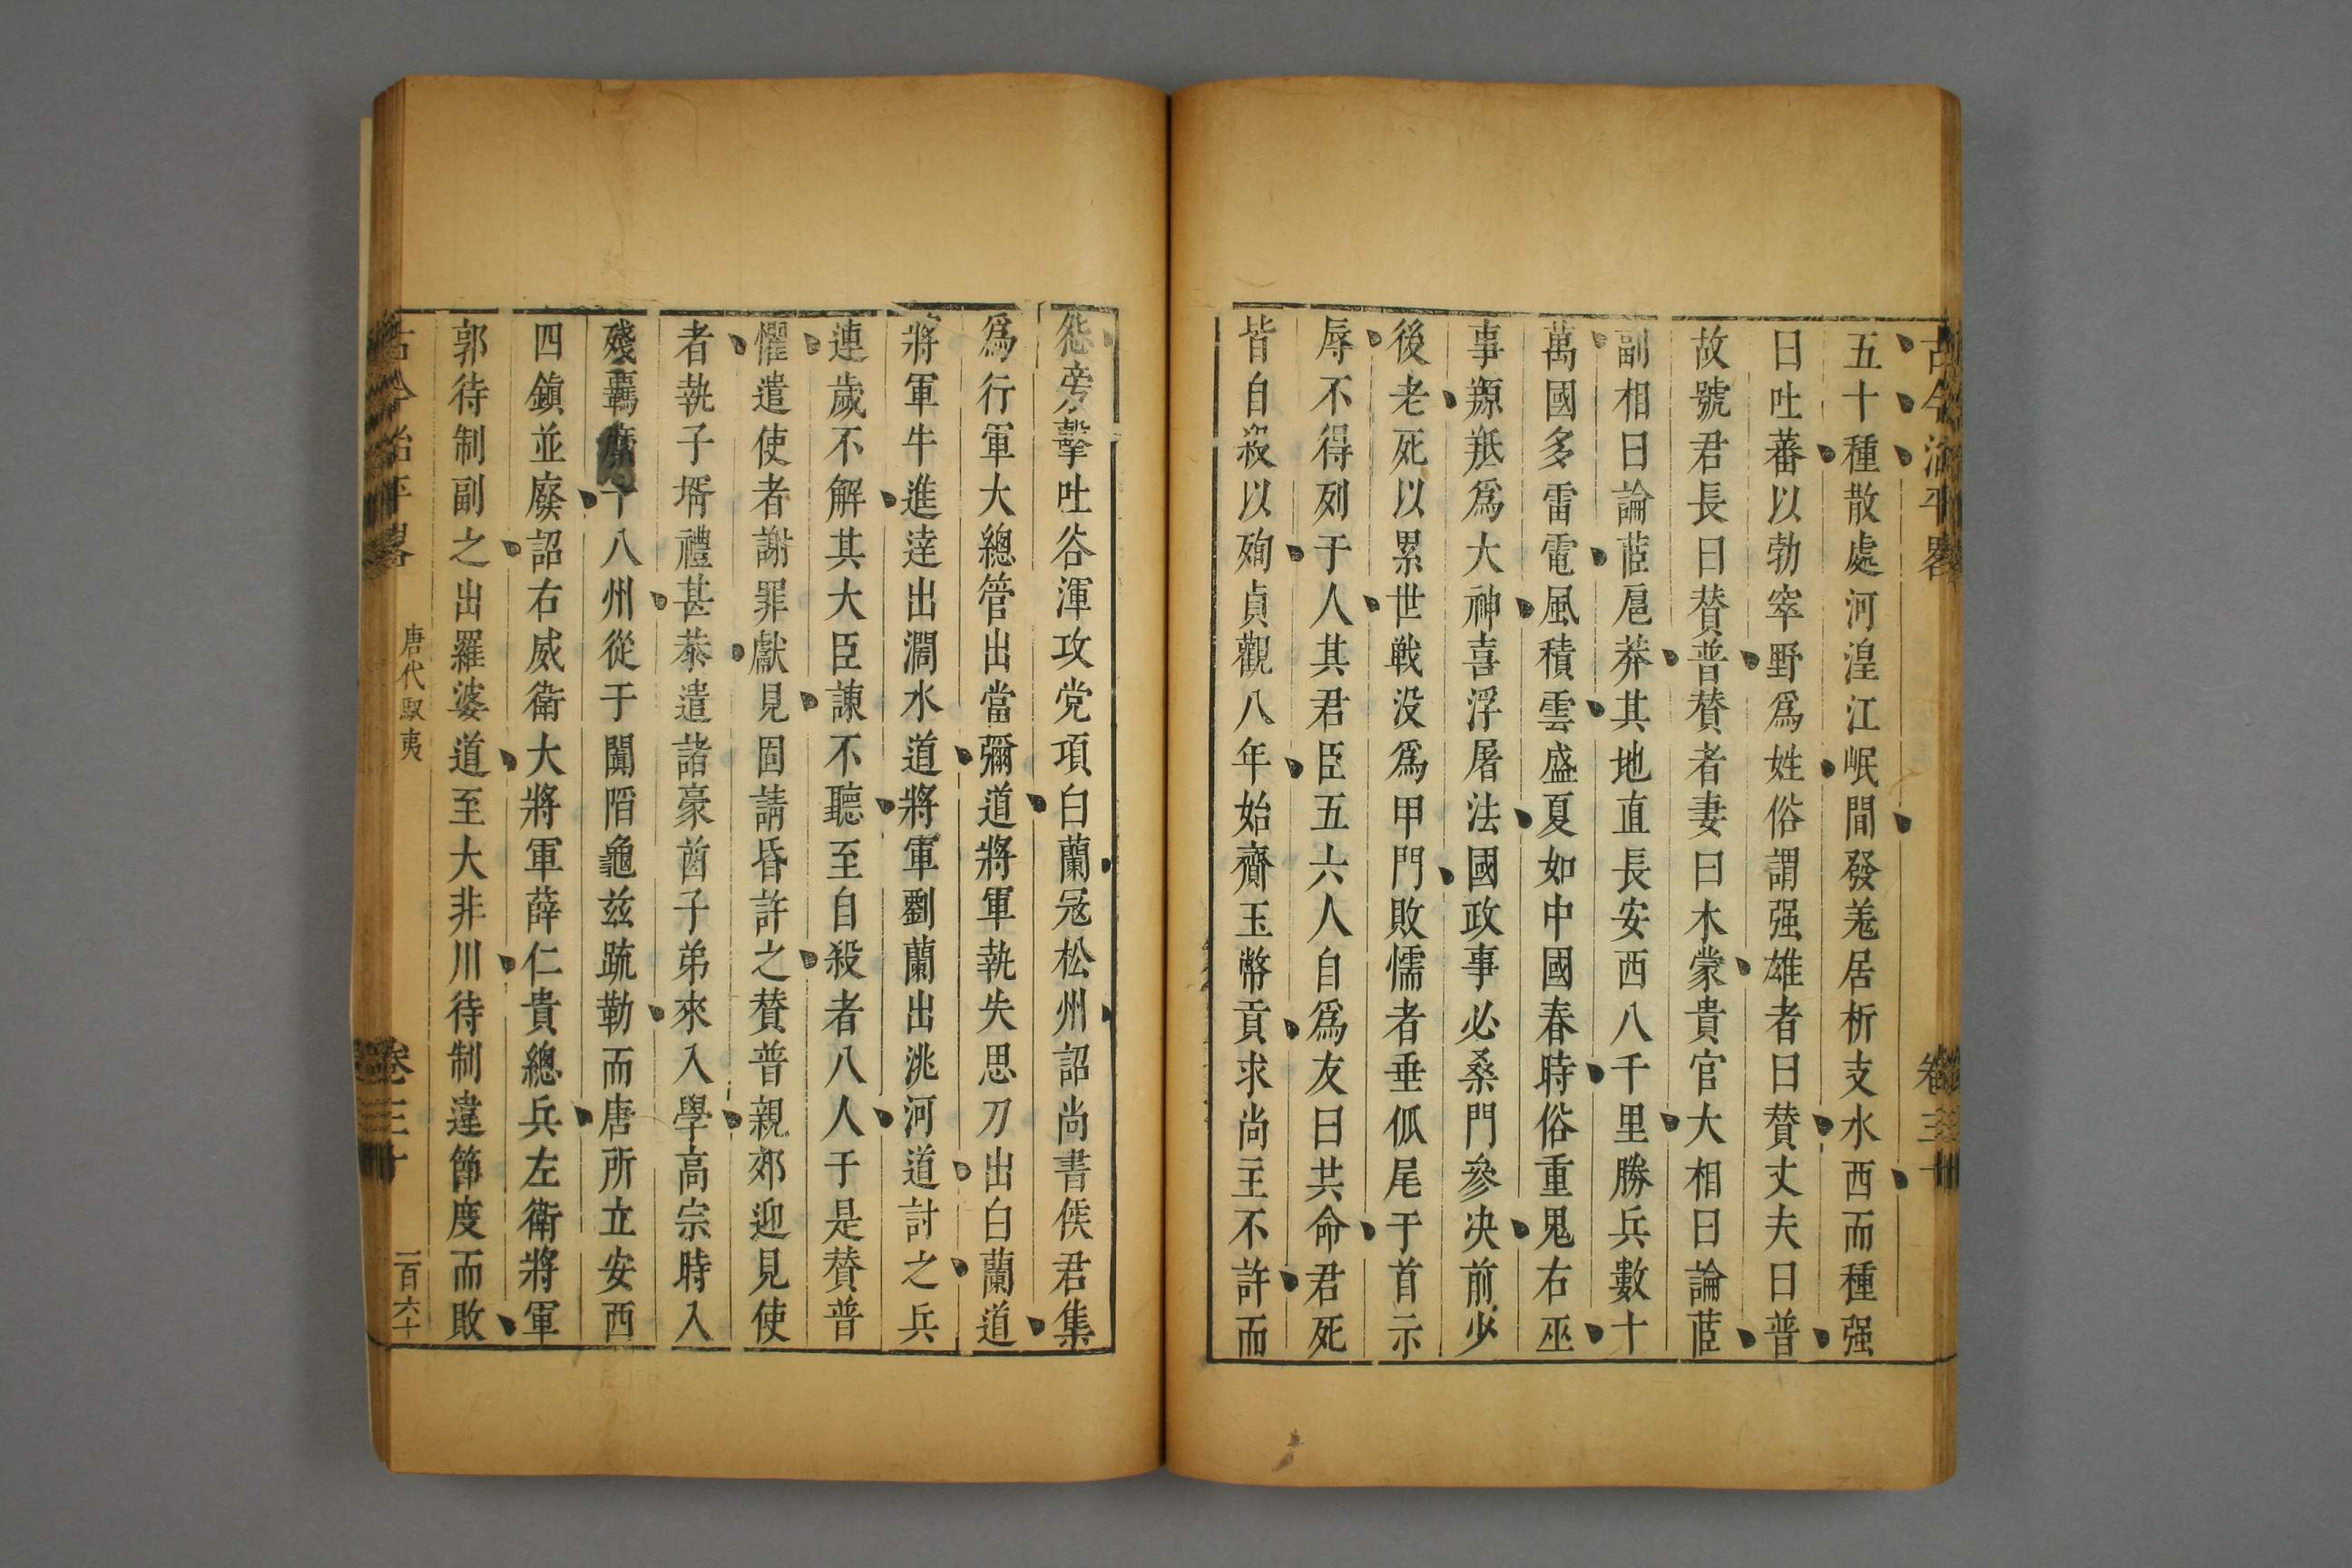 古今治平畧 卷三十
五十種散處河湟江岷間發羗居析支水西而種强
曰吐蕃以勃窣野爲姓俗謂强雄者曰賛丈夫曰普
故號君長曰賛普賛者妻曰木蒙貴官大相曰論茞
副相曰論茞扈莽其地直長安西八千里勝兵數十
萬國多雷電風積雲盛夏如中國春時俗重鬼右巫
事羱羝爲大神喜浮屠法國政事必桑門參决前少
後老死以累世戰没爲甲門敗懦者垂狐尾于首示
辱不得列于人其君臣五六人自爲友曰共命君死
皆自殺以殉貞觀八年始齎玉幣貢求尚主不許而
怨旁擊吐谷渾攻党項白蘭冦松州詔尚書侯君集
爲行軍大總管出當彌道將軍執失思刀出白蘭道
將軍牛進達出濶水道將軍劉蘭出洮河道討之兵
連歲不解其大臣諫不聽至自殺者八人于是賛普
懼遣使者謝罪獻見固請昏許之賛普親郊迎見使
者執子壻禮甚恭遣諸豪酋子弟來入學高宗時入
殘羈縻十八州從于闐陷龜兹疏勒而唐所立安西
四鎮並廢詔右威衛大將軍薛仁貴總兵左衛將軍
郭待制副之出羅婆道至大非川待制違節度而敗
古今治平畧 唐代馭夷 卷三十 一百六十